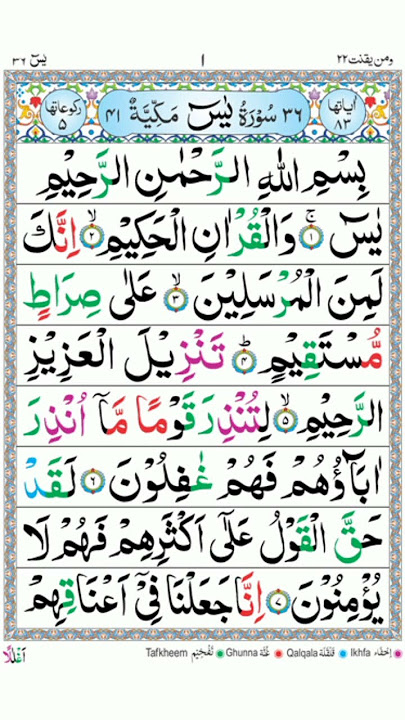 ومن يقنت ٢٢ ١ يٰسٓ ٣٦
اٰياتها ٨٣ ٣٦ سُوْرَةُ يٰسٓ مَكِّيَّةٌ ٤١ ركوعاتها ٥
بِسْمِ اللّٰهِ الرَّحْمٰنِ الرَّحِيْمِ
يٰسٓ ۚ ١ وَالْقُرْاٰنِ الْحَكِيْمِ ۙ ٢ اِنَّكَ
لَمِنَ الْمُرْسَلِيْنَ ۙ ٣ عَلٰى صِرَاطٍ
مُّسْتَقِيْمٍ ؕ ٤ تَنْزِيْلَ الْعَزِيْزِ
الرَّحِيْمِ ۙ ٥ لِتُنْذِرَ قَوْمًا مَّاۤ اُنْذِرَ
اٰبَآؤُهُمْ فَهُمْ غٰفِلُوْنَ ٦ لَقَدْ
حَقَّ الْقَوْلُ عَلٰۤى اَكْثَرِهِمْ فَهُمْ لَا
يُؤْمِنُوْنَ ٧ اِنَّا جَعَلْنَا فِيْۤ اَعْنَاقِهِمْ
اَغْلٰلًا
Tafkheem تَفْخِيْم Ghunna غُنَّه Qalqala قَلْقَلَه Ikhfa اِخفَاء